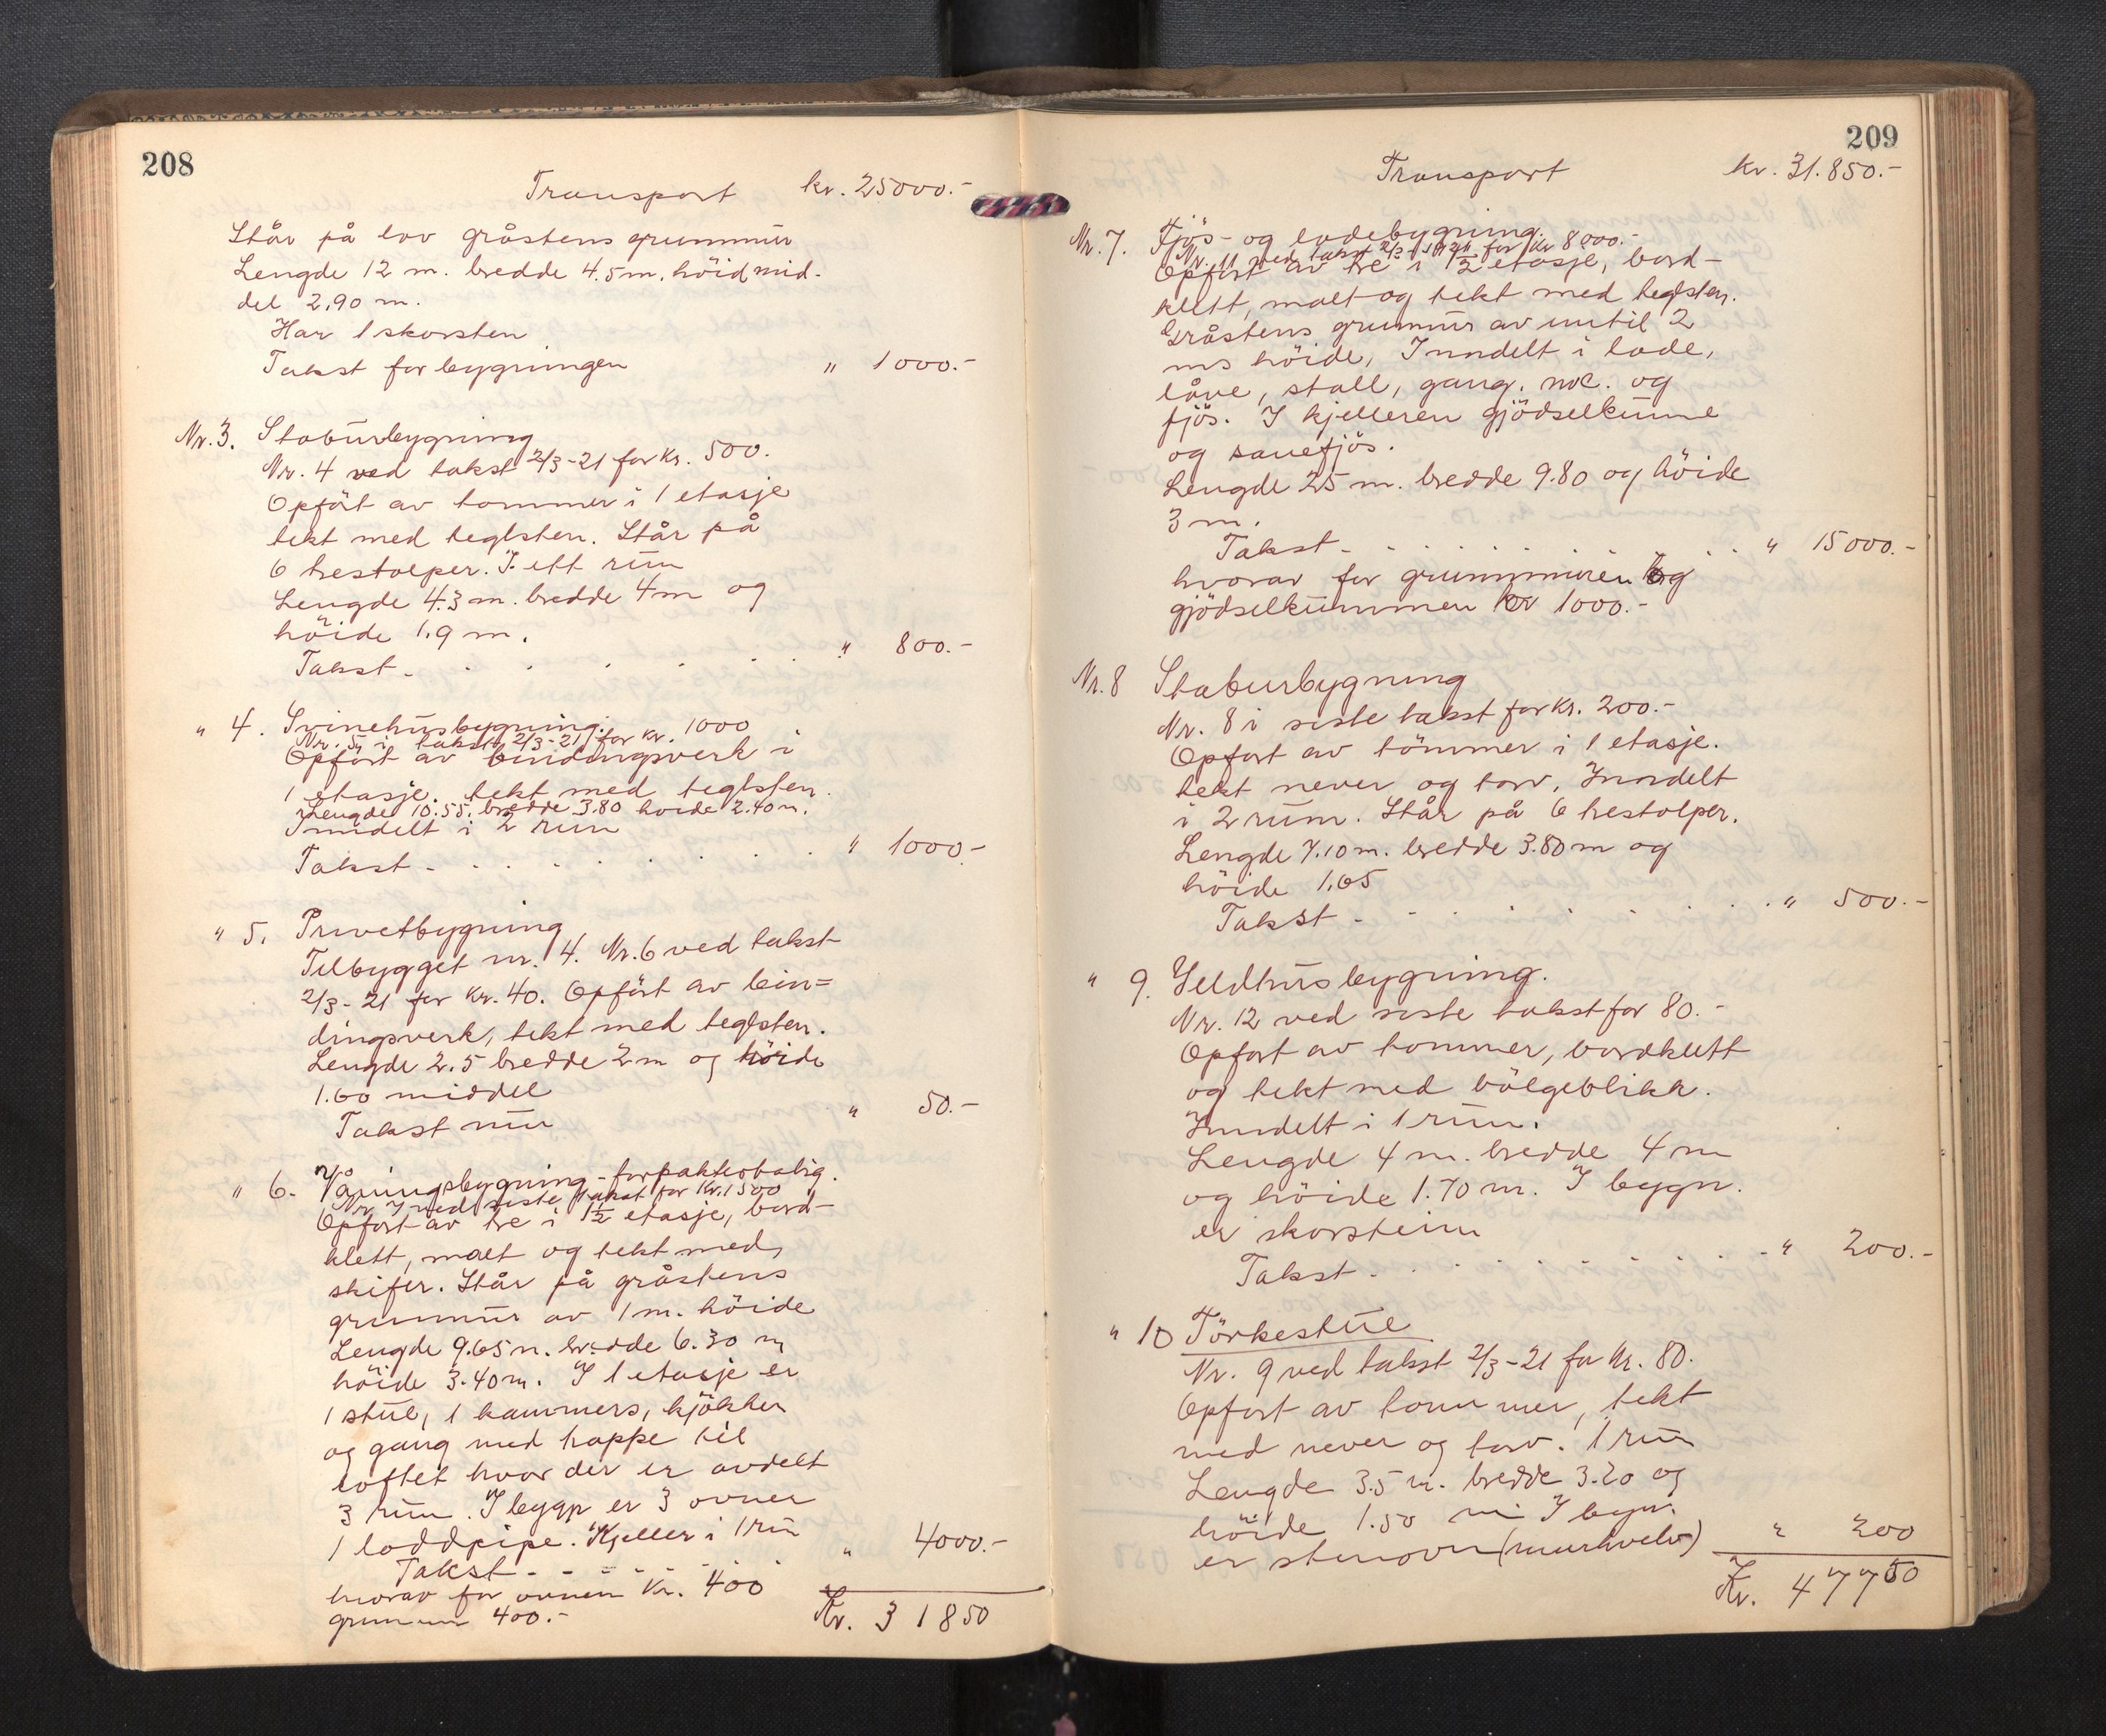 208
Transport kr. 25000.-
Står på lav gråstens grunnmur
Lengde 12 m. bredde 4.5 m. höid mid-
del 2.90 m.
Har 1 skorsten
Takst for bygningen " 1000.-
Nr. 3. Staburbygning
Nr. 4 ved takst 2/3-21 for kr. 500.
Opfört av tommer i 1 etasje
tekt med teglsten. Står på
6 trestolper. I ett rum
Lengde 4.3 m. bredde 4 m og
höide 1.9 m.
Takst - . . . . . . " 800.-
" 4. Svinehusbygning.
Nr. 5 i takst 2/3-21 for kr. 1000
Opfört av bindingsverk i
1 etasje. tekt med teglsten.
Lengde 10.55. bredde 3.80 hoide 2.40 m.
Inndelt i 2 rum
Takst - . . . . . . . " 1000.-
" 5. Privetbygning
Tilbygget nr. 4. Nr. 6 ved takst
2/3-21 for kr. 40. Opfört av bin=
dingsverk, tekt med teglsten.
Lengde 2.5 bredde 2 m og höide
1.60 middel
Takst nu " 50.-
" 6. Våningsbygning - forpakterbolig.
Nr 7 ved siste takst for Kr. 1500
Opfort av tre i 1 1/2 etasje, bord-
klett, malt og tekt med
skifer. Står på gråstens
grunnmur av 1 m. höide
Lengde 9.65 m. bredde 6.30 m
höide 3.40 m. I 1 etasje er
1 stue, 1 kammers, kjökken
og gang med trappe til
loftet hvor der er avdelt
3 rum. I bygn er 3 ovner
1 loddpipe. Kjeller i 1 rum
Takst - - - - - - " 4000.-
hvorav for ovnen Kr. 400
grunnmur 400.-
Kr. 31850
209
Transport kr. 31.850.-
Nr. 7. Fjös- og ladebygning.
Nr. 11 ved takst 2/3-1921 for Kr 8000.-
Opfort av tre i 1 1/2 etasje, bord-
klett, malt og tekt med teglsten.
Gråstens grunnmur av inntil 2
ms höide, Inndelt i lade,
låve, stall, gang. m.v. og
fjös. I kjelleren gjödselkumme
og sauefjös.
Lengde 25 m. bredde 9.80 og höide
3 m.
Takst - . . . . . . . . " 15000.-
hvorav for grunnmuren og
gjödselkummen kr 1000.-
Nr. 8 Staburbygning
Nr. 8 i siste takst for kr. 200.-
Opfort av tömmer i 1 etasje.
tekt never og torv, Inndelt
i 2 rum. Står på 6 trestolper.
Lengde 7.10 m. bredde 3.80 m og
höide 1.65
Takst - . . . . . . . " 500.-
" 9. Ildhusbygning.
Nr. 12 ved siste takst for 80.-
Opfort av tommer, bordklett
og tekt med bölgeblikk.
Inndelt i 1 rum.
Lengde 4 m. bredde 4 m
og höide 1.70 m. I bygn.
er skorstein
Takst - . . . . . . . " 200.-
" 10 Törkestue
Nr. 9 ved takst 2/3-21 for kr. 80.
Opfort av tommer, tekt
med never og torv. 1 rum
Lengde 3.5 m. bredde 3.20 og
höide 1.50 m I bygn.
er stenovn (murhvelv) " 200
Kr. 47750